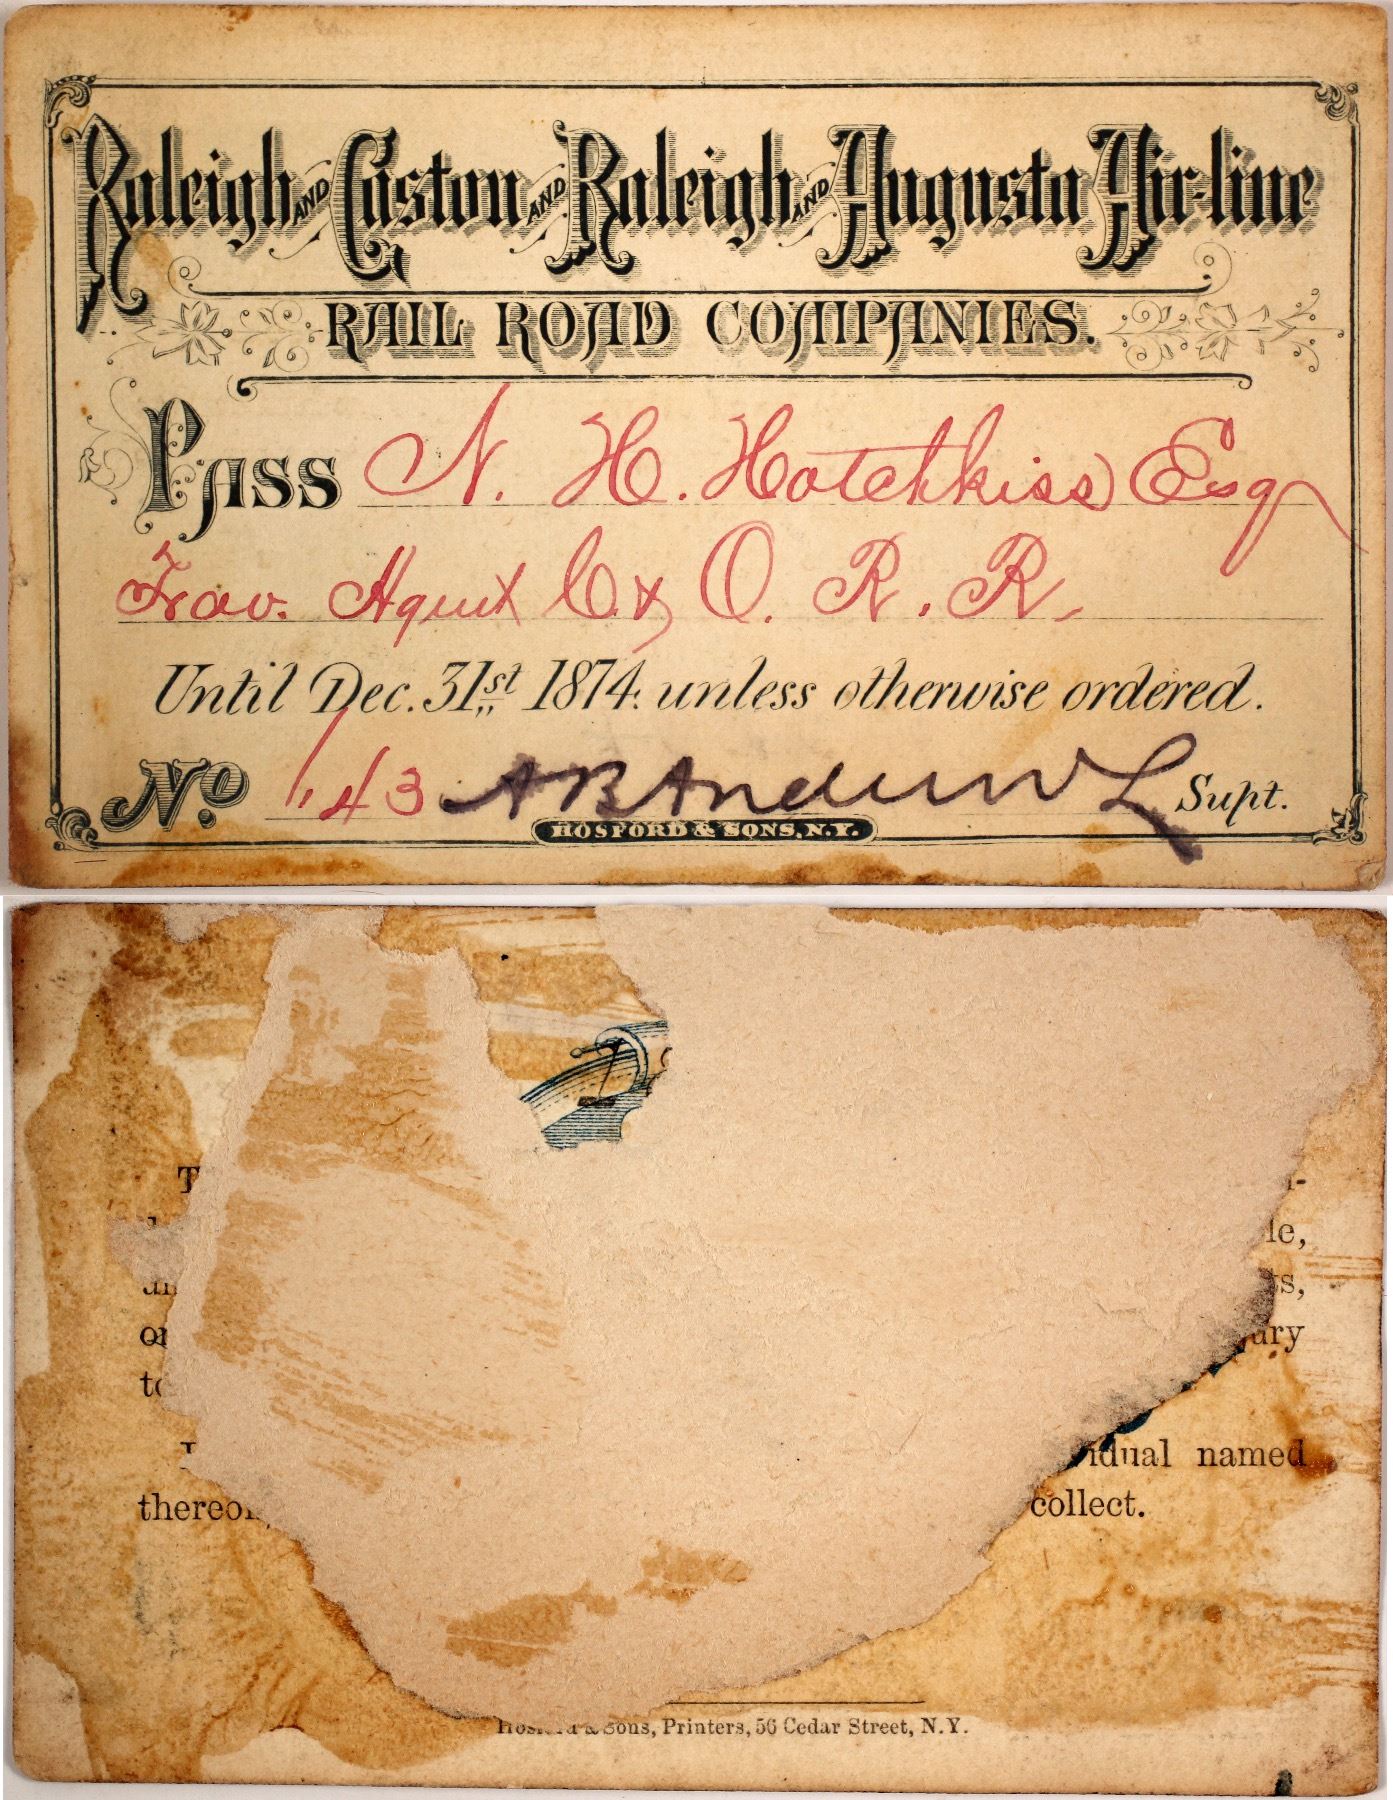 Raleigh AND Gaston AND Raleigh AND Augusta Air-line
RAIL ROAD COMPANIES.
PASS N. H. Hotchkiss Esq
Trav. Agent C & O. R. R.
Until Dec. 31st 1874: unless otherwise ordered.
No 143 A B Andrews Supt.
HOSFORD & SONS, N.Y.
named
collect.
& Sons, Printers, 56 Cedar Street, N.Y.